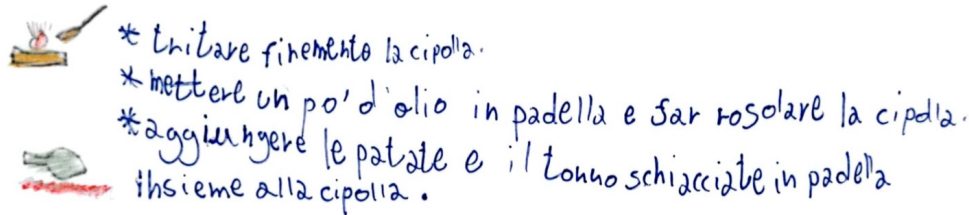 * tritare finemento la cipolla.
* mettere un po' d'olio in padella e far rosolare la cipolla.
* aggiungere le patate e il tonno schiacciate in padella
insieme alla cipolla.